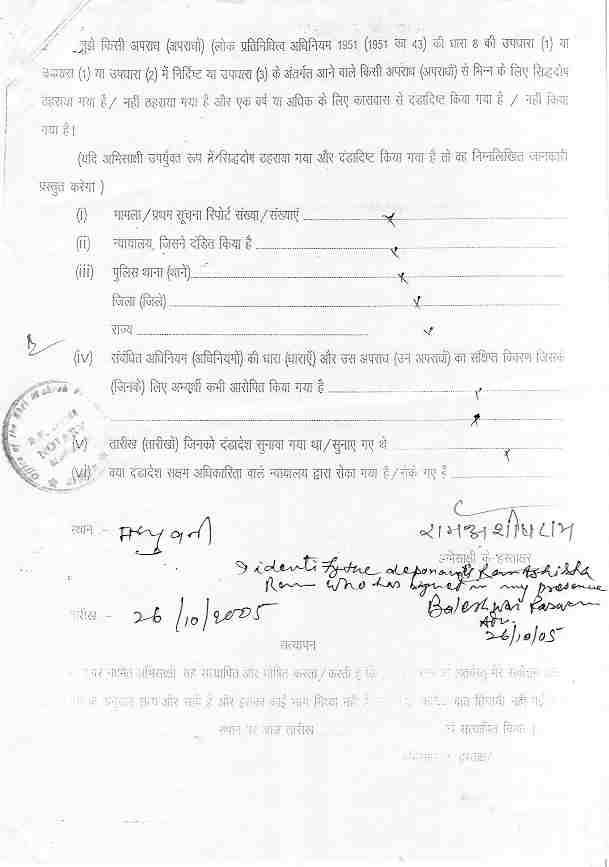 मुझे किसी अपराध (अपराधों) (लोक प्रतिनिधित्व अधिनियम 1951 (1951 का 43) की धारा 8 की उपधारा (1) या
उपधारा (1) या उपधारा (2) में निर्दिष्ट या उपधारा (3) के अंतर्गत आने वाले किसी अपराध (अपराधों) से भिन्न के लिए सिद्धदोष
ठहराया गया है / नहीं ठहराया गया है और एक वर्ष या अधिक के लिए कारावास से दंडादिष्ट किया गया है / नहीं किया
गया है।
(यदि अभिसाक्षी उपर्युक्त रूप में सिद्धदोष ठहराया गया और दंडादिष्ट किया गया है तो वह निम्नलिखित जानकारी
प्रस्तुत करेगा )
(i) मामला / प्रथम सूचना रिपोर्ट संख्या / संख्याएं x
(ii) न्यायालय, जिसने दंडित किया है x
(iii) पुलिस थाना (थाने) x
जिला (जिले) x
राज्य x
(iv) संबंधित अधिनियम (अधिनियमों) की धारा (धाराएँ) और उस अपराध (उन अपराधों) का संक्षिप्त विवरण जिसके
(जिनके) लिए अभ्यर्थी कभी आरोपित किया गया है x
x
(v) तारीख (तारीखों) जिनको दंडादेश सुनाया गया था / सुनाए गए थे x
(vi) क्या दंडादेश सक्षम अधिकारिता वाले न्यायालय द्वारा रोका गया है / रोके गए हैं
NOTARY
स्थान :- मधुबनी
रामअशीष राम
अभिसाक्षी के हस्ताक्षर
I identify the deponant Ram Ashish
Ram who has signed in my presence
तारीख - 26/10/2005
Baleshwar Paswan
Adv.
26/10/05
सत्यापन
नामित अभिसाक्षी यह सत्यापित और घोषित करता / करती हूँ कि
के अनुसार सत्य और सही है और इसका कोई भाग मिथ्या नहीं है
स्थान पर आज तारीख सत्यापित किया।
हस्ताक्षर